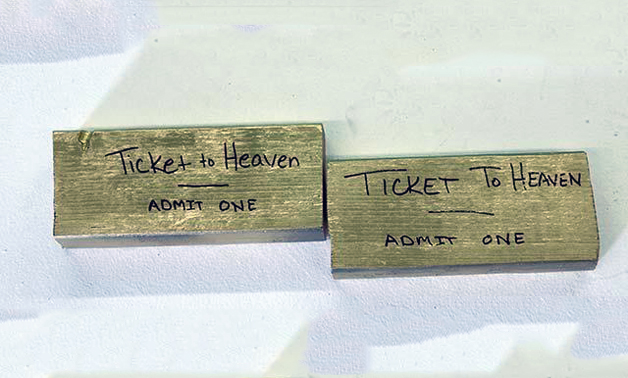 Ticket to Heaven
ADMIT ONE
TICKET TO HEAVEN
ADMIT ONE